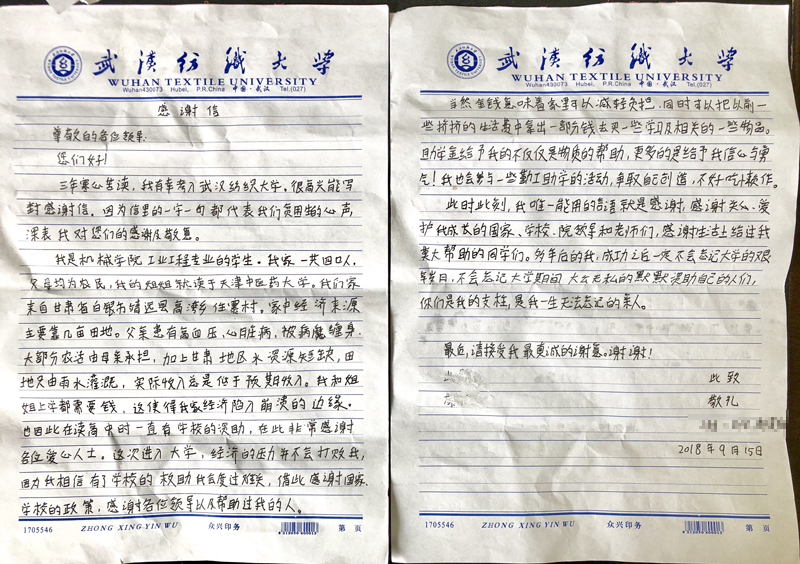 武汉纺织大学
WUHAN TEXTILE UNIVERSITY
Wuhan430073 Hubei, P.R.China 中国·武汉 Tel.(027)
感谢信
尊敬的各位领导:
您们好!
三年寒心苦读,我有幸考入武汉纺织大学。很高兴能写
封感谢信。因为信里的一字一句都代表我们贫困生的心声,
深表我对您们的感谢及敬意。
我是机械学院工业工程专业的学生。我家一共四口人,
父母均为农民,我的姐姐就读于天津中医药大学。我们家
来自甘肃省白银市靖远县高湾乡
家中经济来源
主要靠几亩田地。父亲患有高血压,心脏病,被病魔缠身,
大部分农活由母亲承担,加上甘肃地区水资源短缺,田
地只由雨水灌溉,实际收入总是低于预期收入。我和姐
姐上学都需要钱,这使得我家经济陷入崩溃的边缘。
也因此在读高中时一直有学校的资助,在此非常感谢
各位爱心人士。这次进入大学,经济的压力并不会打败我,
因为我相信有了学校的救助我会度过难关,借此感谢国家、
学校的政策,感谢各位领导以及帮助过我的人。
1705546 ZHONG XING YIN WU 众兴印务 第 页
武汉纺织大学
WUHAN TEXTILE UNIVERSITY
Wuhan430073 Hubei, P.R.China 中国·武汉 Tel.(027)
当然金钱意味着家里可以减轻负担,同时可以把以前一
些拮据的生活费中拿出一部分钱去买一些学习及相关的一些物品。
助学金给予我的不仅仅是物质的帮助,更多的是给予我信心与勇
气!我也会参与一些勤工助学的活动,争取自己创造,不好吃懒作。
此时此刻,我唯一能用的言语就是感谢,感谢关心、爱
护我成长的国家、学校、院领导和老师们,感谢生活上给过我
莫大帮助的同学们。多年后的我,成功之后一定不会忘记大学的艰
辛岁月,不会忘记大学期间大公无私的默默资助自己的人们,
你们是我的支柱,是我一生无法忘记的亲人。
最后,请接受我最真诚的谢意。谢谢!
此致
敬礼
2018年9月15日
1705546 ZHONG XING YIN WU 众兴印务 第 页